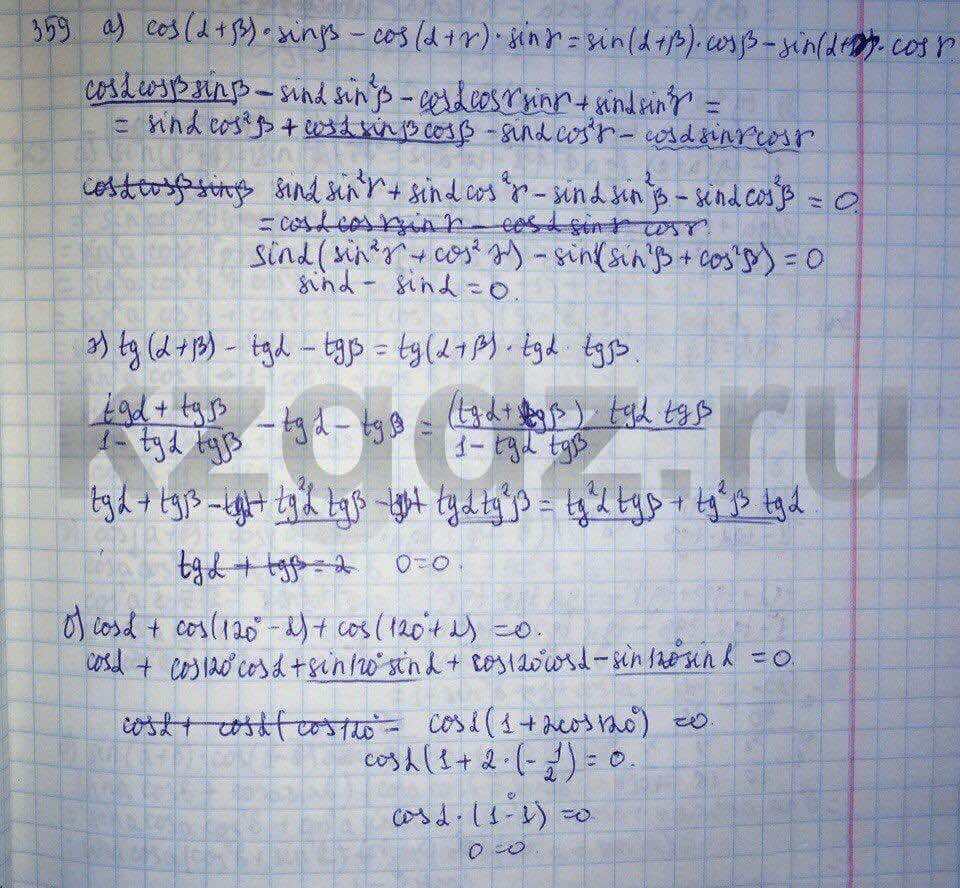 359 а) cos(α+β)·sinβ − cos(α+γ)·sinγ = sin(α+β)·cosβ − sin(α+γ)·cosγ.
cosαcosβsinβ − sinαsin²β − cosαcosγsinγ + sinαsin²γ =
= sinαcos²β + cosαsinβcosβ − sinαcos²γ − cosαsinγcosγ
cosαcosβsinβ sinαsin²γ + sinαcos²γ − sinαsin²β − sinαcos²β = 0.
= cosαcosγsinγ − cosαsinγcosγ
sinα(sin²γ + cos²γ) − sin(sin²β + cos²β) = 0
sinα − sinα = 0.
г) tg(α+β) − tgα − tgβ = tg(α+β)·tgα·tgβ.
(tgα + tgβ)/(1 − tgα tgβ) − tgα − tgβ = ((tgα + tgβ) tgα tgβ)/(1 − tgα tgβ)
tgα + tgβ − tgα + tg²α tgβ − tgβ + tgα tg²β = tg²α tgβ + tg²β tgα.
tgα + tgβ = 2 0=0.
kzgdz.ru
б) cosα + cos(120° − α) + cos(120° + α) = 0.
cosα + cos120°cosα + sin120°sinα + cos120°cosα − sin120°sinα = 0.
cosα + cosα(cos120° = cosα(1 + 2cos120°) = 0.
cosα(1 + 2·(−1/2) = 0.
cosα·(1−1) = 0
0=0.